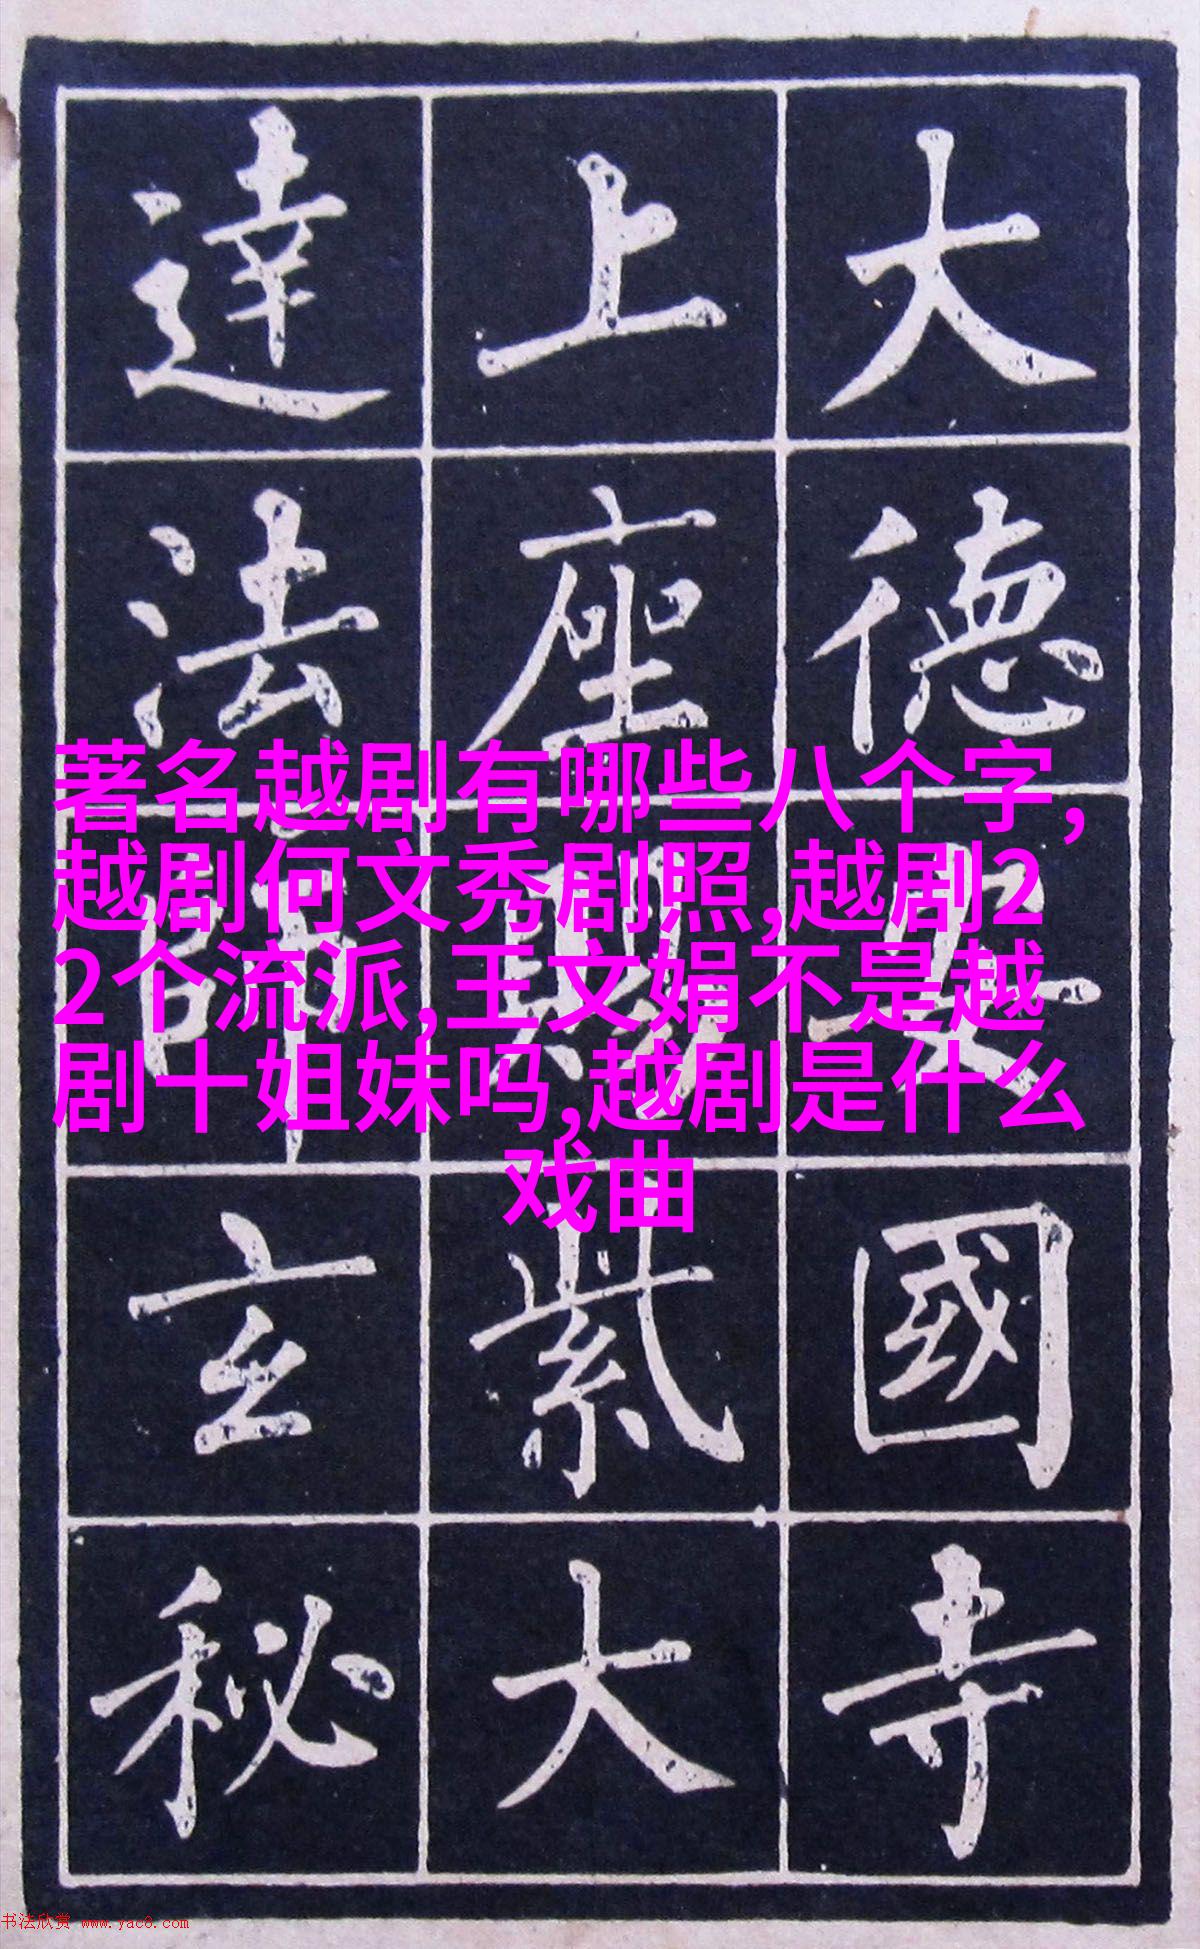 大德安國寺
上座賜紫大
達法師玄秘
著名越剧有哪些八个字,
越剧何文秀剧照,越剧2
2个流派,王文娟不是越
剧十姐妹吗,越剧是什么
戏曲
书法欣赏 www.yac8.com